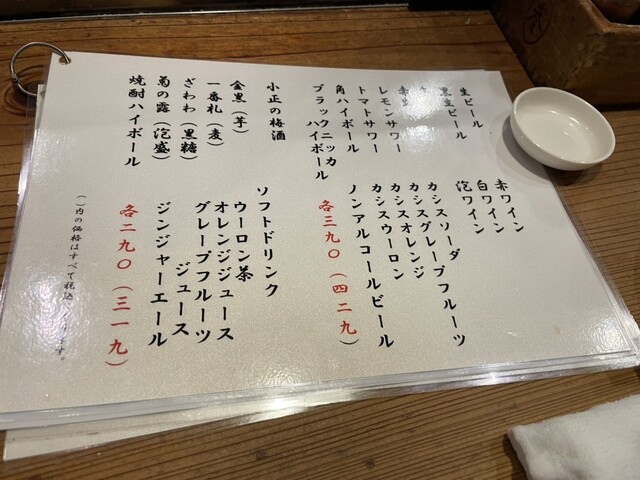 生ビール
黒生ビール
レモンサワー
トマトサワー
角ハイボール
ブラックニッカ
ハイボール
小正の梅酒
金黒（芋）
一番札（麦）
ざわわ（黒糖）
菊の露（泡盛）
焼酎ハイボール
赤ワイン
白ワイン
泡ワイン
カシスソーダ
カシスグレープフルーツ
カシスオレンジ
カシスウーロン
ノンアルコールビール
各三九〇（四二九）
ソフトドリンク
ウーロン茶
オレンジジュース
グレープフルーツ
ジュース
ジンジャーエール
各二九〇（三一九）
（）内の価格はすべて税込
ます。